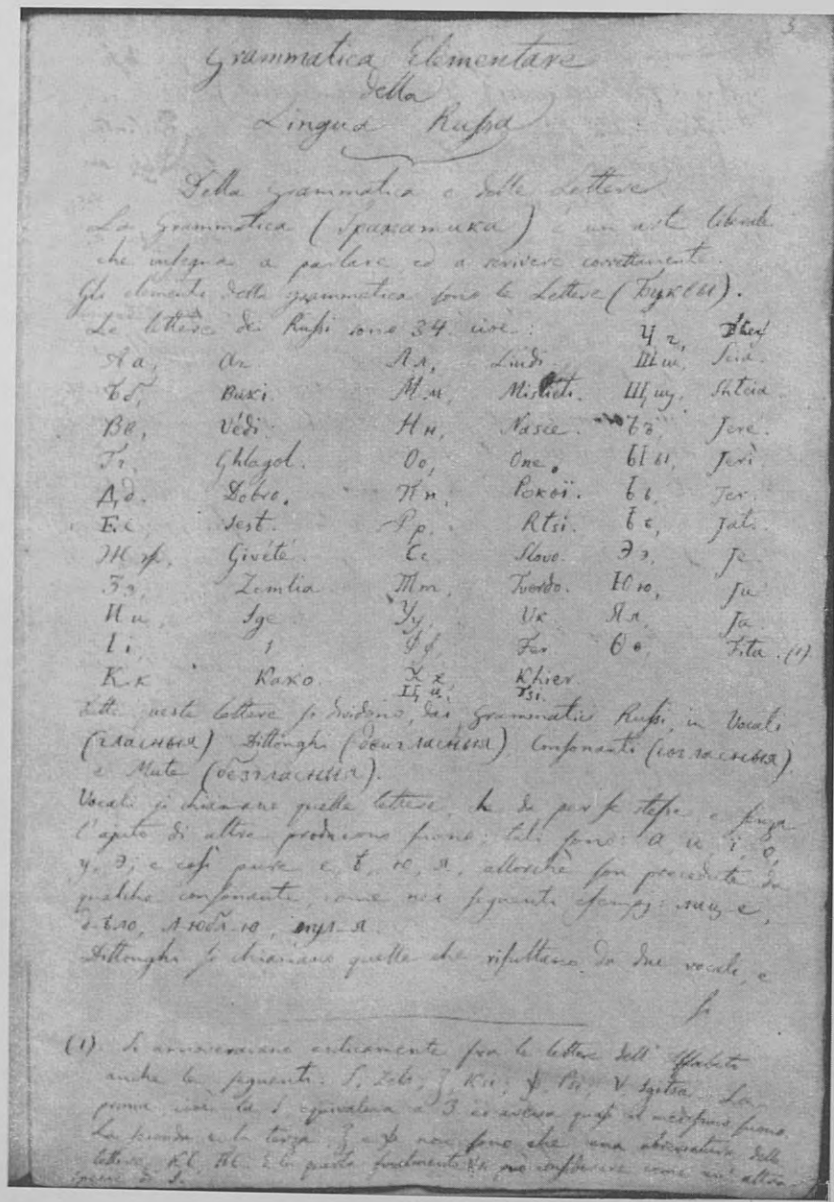 3
Grammatica Elementare
della
Lingua Russa
Della Grammatica e delle Lettere
La Grammatica (Граматика) è un arte liberale
che insegna a parlare, ed a scrivere correttamente.
Gli elementi della grammatica sono le Lettere (Буквы).
Le lettere dei Russi sono 34. cioè:
Ч ч,
А а, Az. Л л, Liudi. Ш ш, Scia.
Б б, Buxi. М м, Mislieti. Щ щ, Shtcia.
В в, Védi. Н н, Nasce. Ъ ъ, Jere.
Г г, Ghlagol. О о, One. Ы ы, Jerì.
Д д. Dobro. П п, Pokoï. Ь ь, Jer.
Е е, Jest. Р р. Rtsi. Ѣ ѣ, Jati.
Ж ж, Givété. С с Slovo. Э э, Je
З з, Zemlia. Т т, Tvordo. Ю ю, Ju
И и, Ige У у, Uk Я я, Ja.
І і, I Ф ф, Fer Ѳ ѳ, Fita. (1).
К к Kako. Х х Khier
Ц ц, Tsi.
Tutte queste lettere si dividono, dai Grammatici Russi, in Vocali
(гласныя) Dittonghi (двугласныя) Consonanti (согласныя)
e Mute (безгласныя).
Vocali si chiamano quelle lettere, che da per se stesse e senza
l'ajuto di altre producono suono; tali sono: а и, і, о,
у, э; e così pure е, ѣ, ю, я, allorchè son precedute da
qualche consonante, come nei seguenti esempj: лиц-е,
д-ѣло, л-юбл-ю, пул-я.
Dittonghi si chiamano quelle che risultano da due vocali, e
si
(1). Si annoveravano anticamente fra le lettere dell' Alfabeto
anche le seguenti: Ѕ, Zelo, Ѯ, Ksi; Ѱ. Psi, Ѵ Igitsa. La
prima, cioè la Ѕ equivaleva a З ed aveva quasi il medesimo suono.
La seconda e la terza, Ѯ e Ѱ non sono che una abbreviatura delle
lettere, КС, ПС. E la quarta finalmente può considerare come un' altra
specie di I.